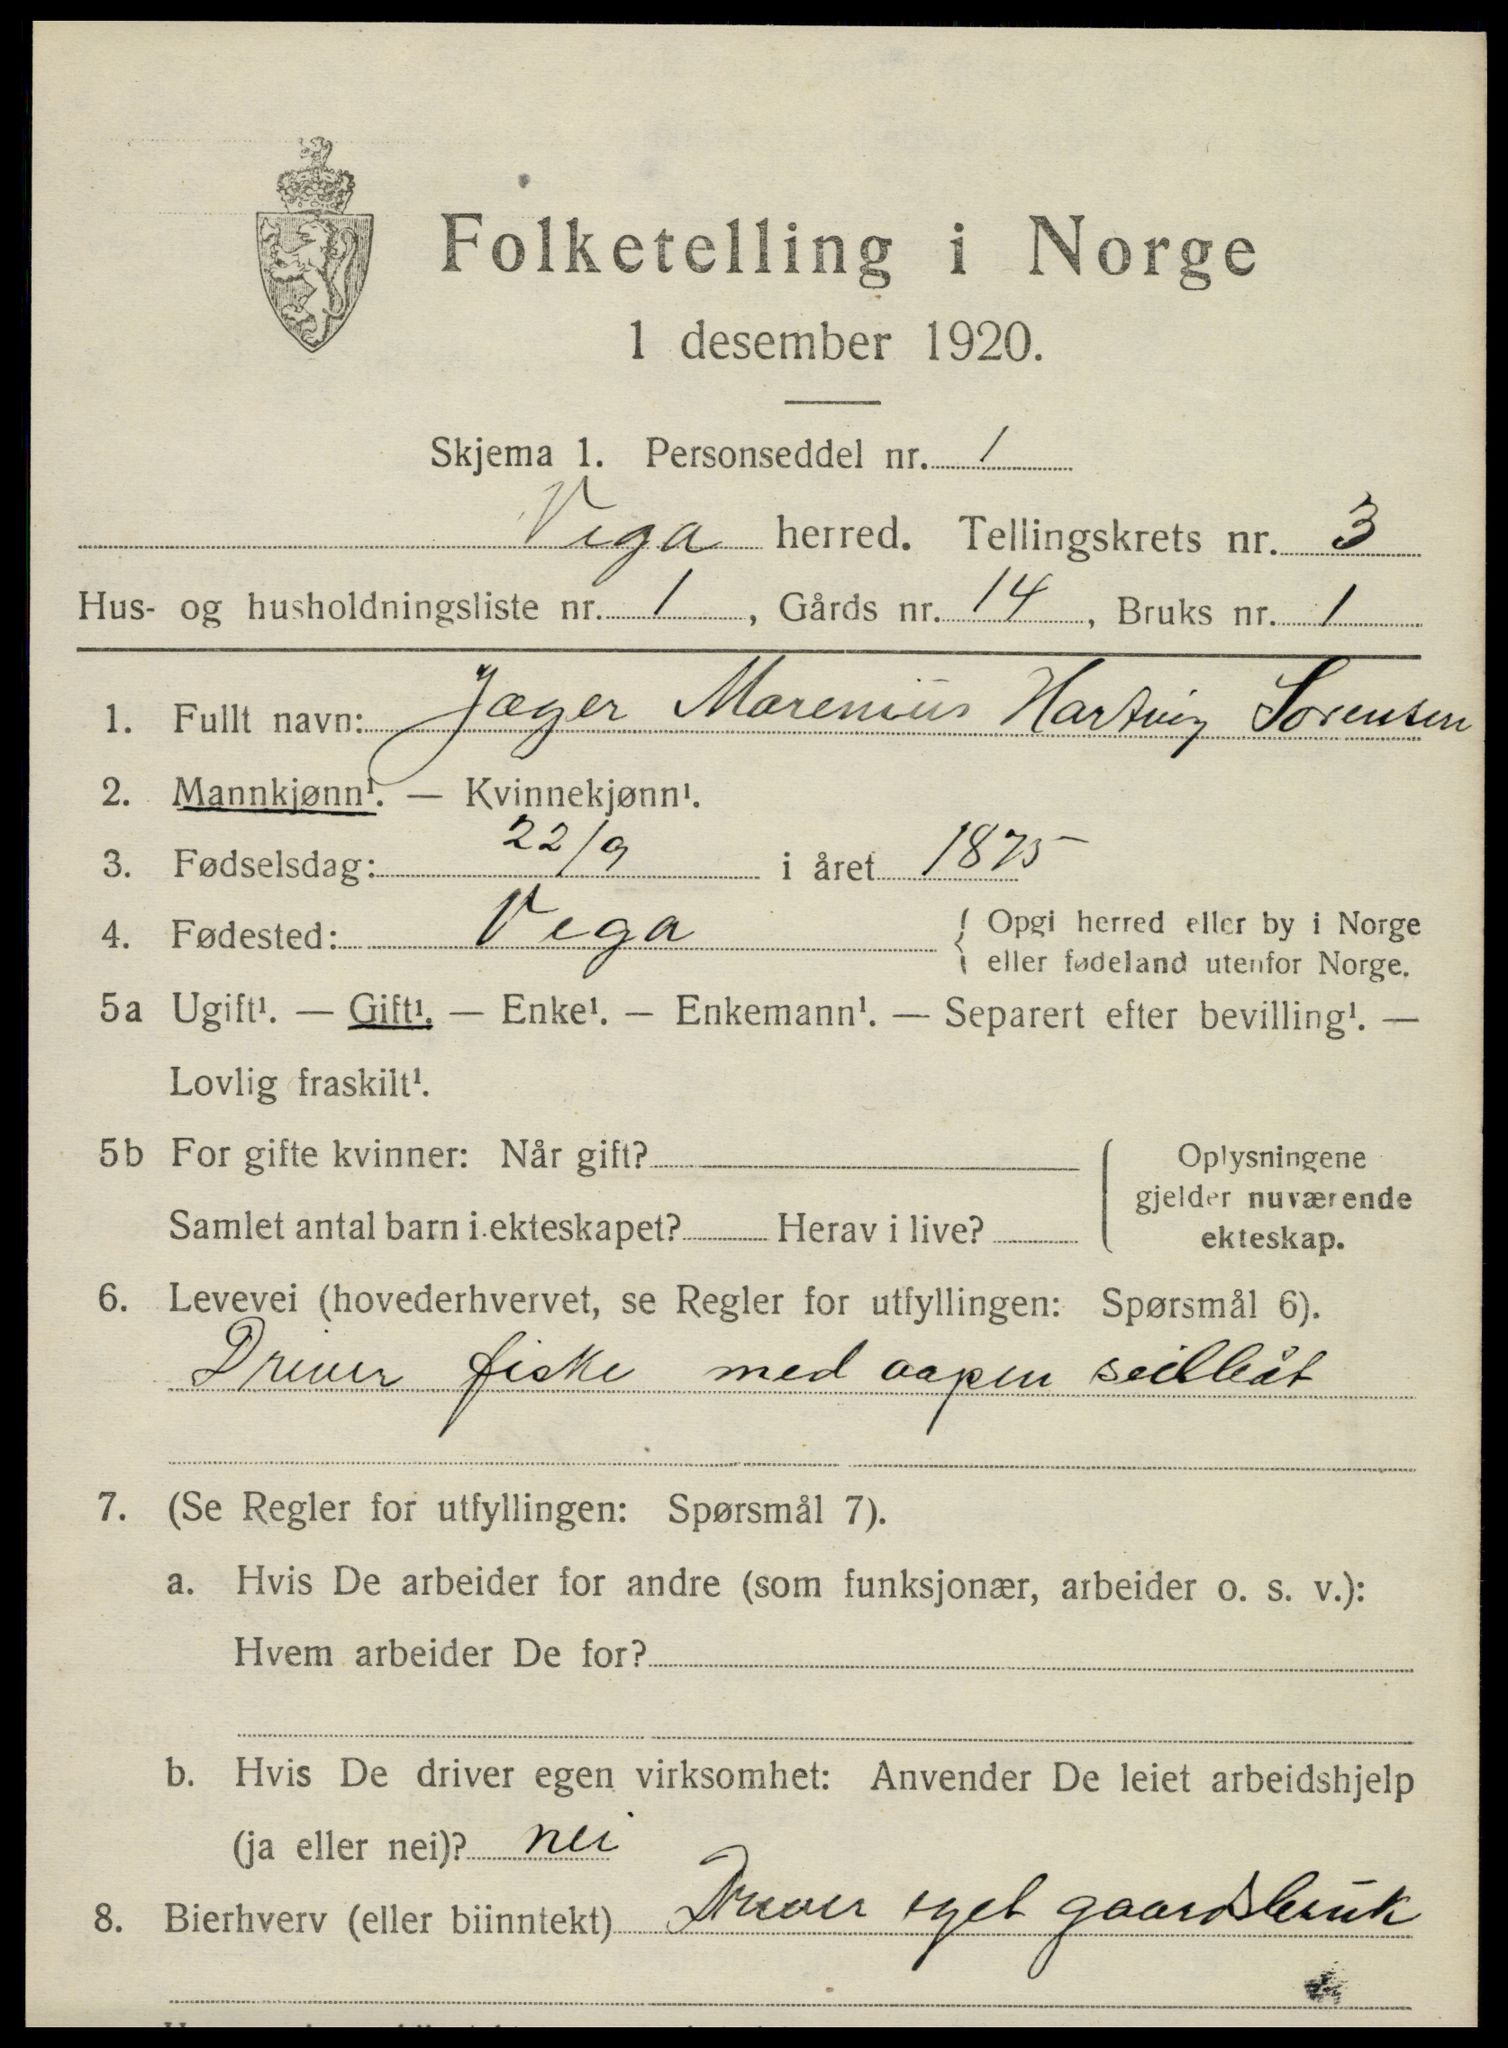 Folketelling i Norge
1 desember 1920.
Skjema 1. Personseddel nr. 1
Vega herred. Tellingskrets nr. 3
Hus- og husholdningsliste nr. 1, Gårds nr. 14, Bruks nr. 1
1. Fullt navn: Jæger Marenius Hartvig Sorensen
2. Mannkjønn¹. — Kvinnekjønn¹.
3. Fødselsdag: 22/9 i året 1875
4. Fødested: Vega { Opgi herred eller by i Norge
eller fødeland utenfor Norge.
5a Ugift¹. — Gift¹. — Enke¹. — Enkemann¹. — Separert efter bevilling¹. —
Lovlig fraskilt¹.
5b For gifte kvinner: Når gift? Oplysningene
gjelder nuværende
Samlet antal barn i ekteskapet? Herav i live?
ekteskap.
6. Levevei (hovederhvervet, se Regler for utfyllingen: Spørsmål 6).
Driver fiske med aapen seilbåt
7. (Se Regler for utfyllingen: Spørsmål 7).
a. Hvis De arbeider for andre (som funksjonær, arbeider o. s. v.):
Hvem arbeider De for?
b. Hvis De driver egen virksomhet: Anvender De leiet arbeidshjelp
(ja eller nei)? nei
8. Bierhverv (eller biinntekt) Driver eget gaardsbruk